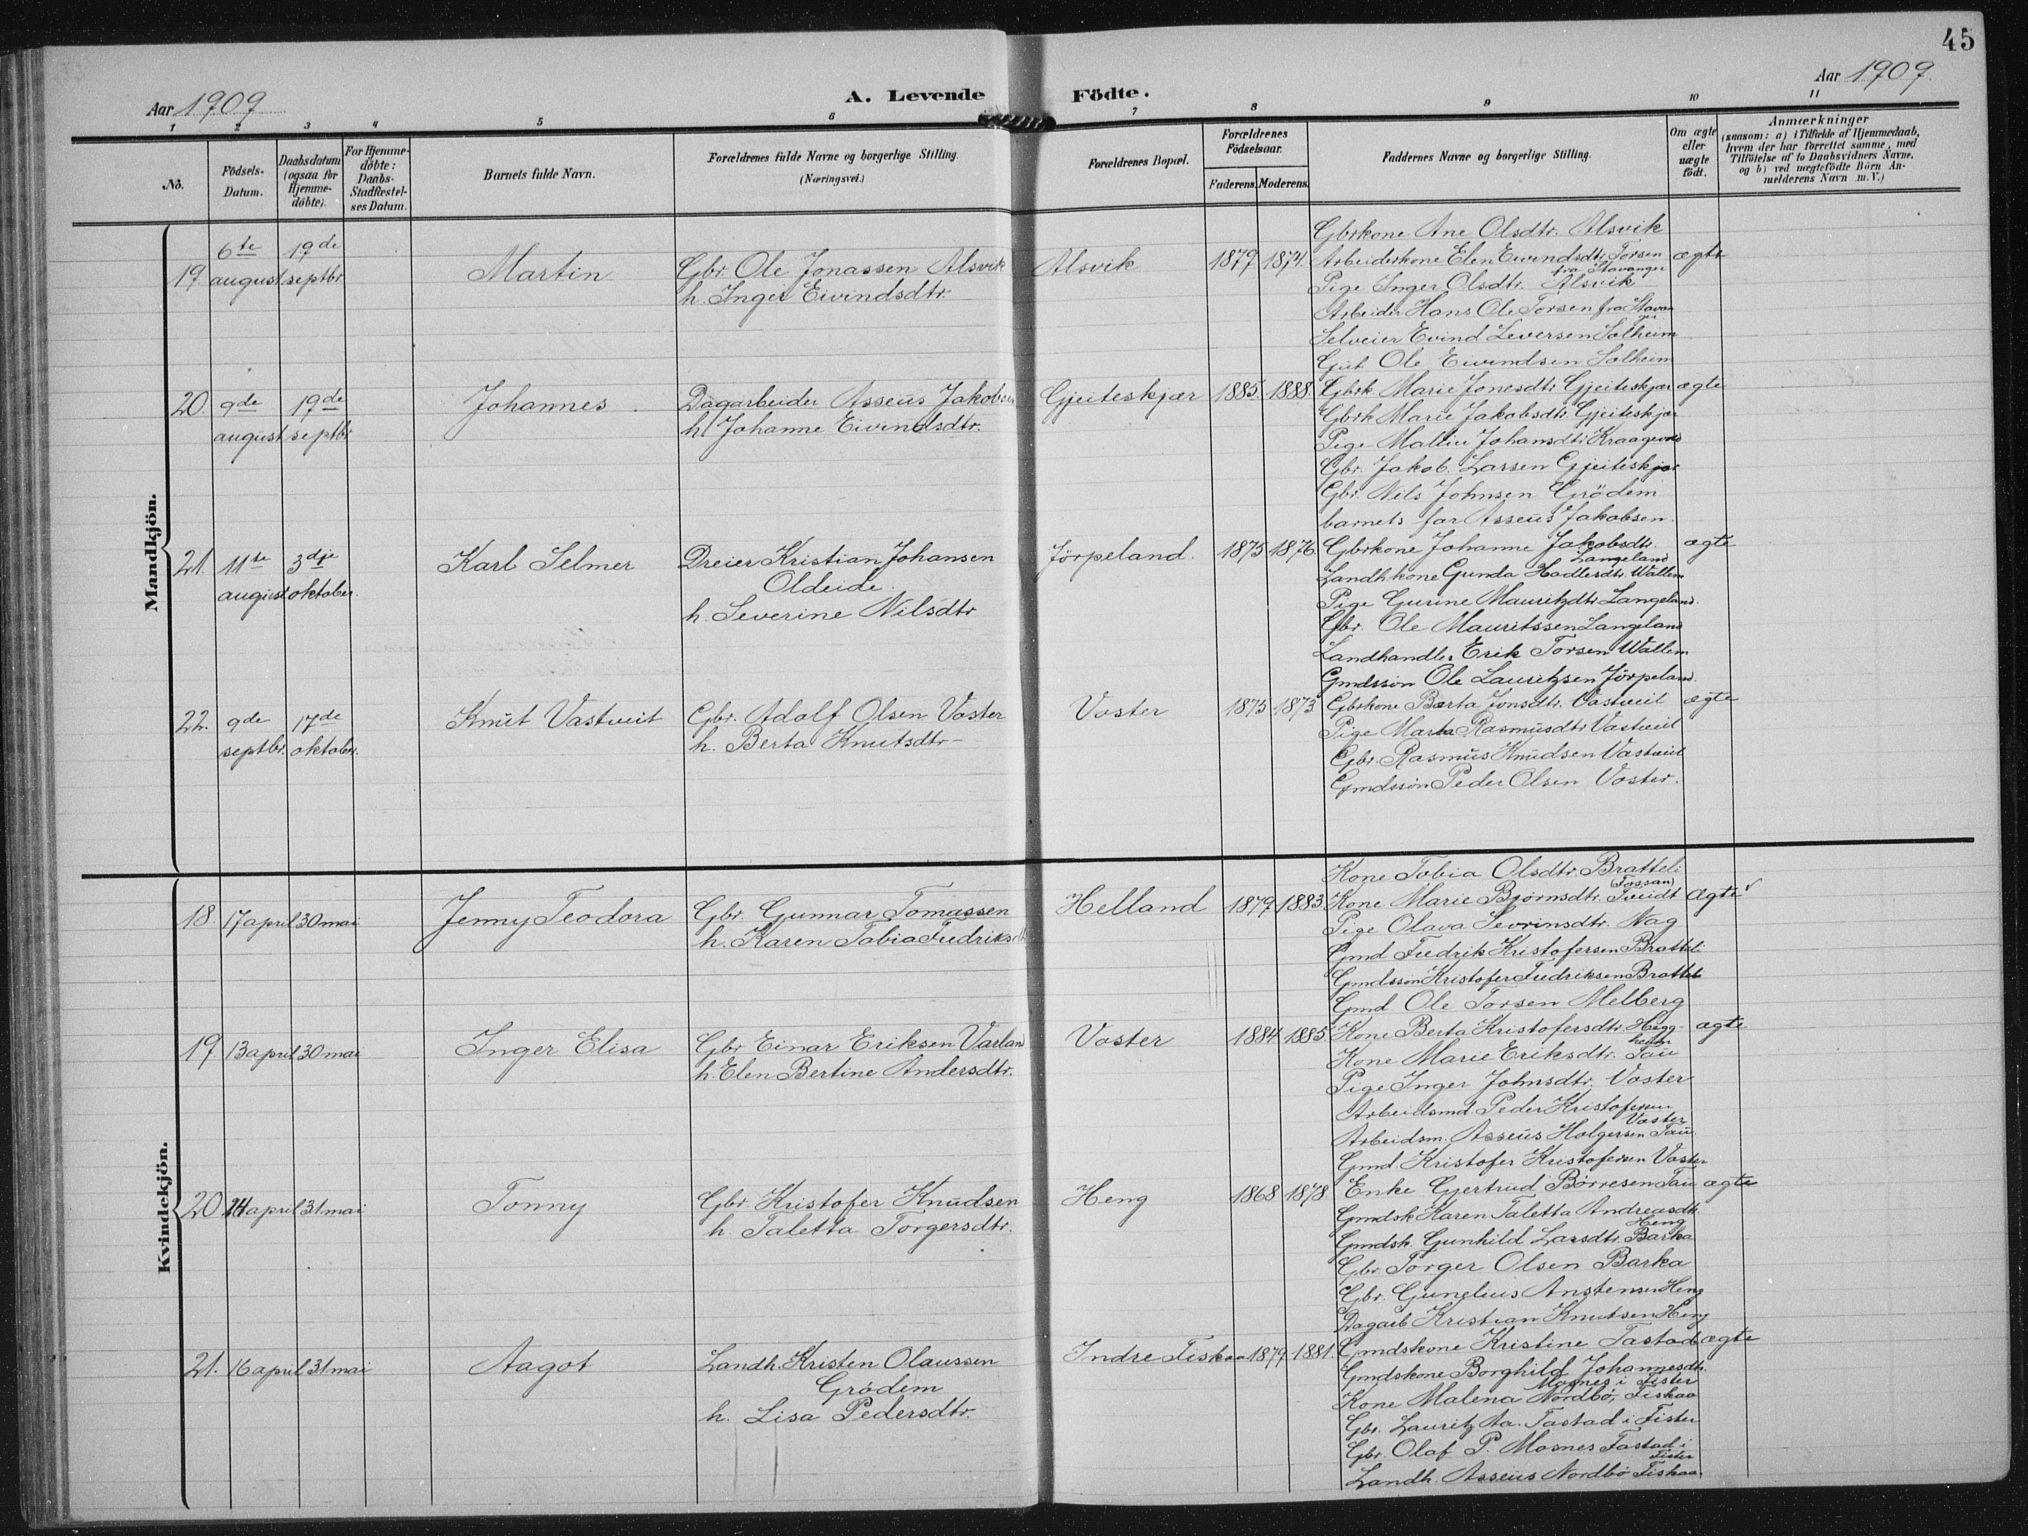 45
Aar 1909
A. Levende Födte.
Aar 1909.
1 2 3 4 5 6 7 8 9 10 11
No.
Födsels-
Datum.
Daabsdatum
(ogsaa for
Hjemme-
döbte).
For Hjemme-
döbte:
Daabs-
Stadfæstel-
ses Datum.
Barnets fulde Navn.
Forældrenes fulde Navne og borgerlige Stilling.
(Næringsvei.)
Forældrenes Bopæl.
Forældrenes
Födselsaar.
Faderens. Moderens.
Faddernes Navne og borgerlige Stilling.
Om ægte
eller
uægte
födt.
Anmærkninger
(saasom: a) i Tilfælde af Hjemmedaab,
hvem der har forrettet samme, med
Tilföielse af to Daabsvidners Navne.
og b) ved uægtefödte Börn An-
melderens Navn m. V.)
Mandkjön.
19 6te august 19de septbr. Martin
Gbr. Ole Jonassen Alsvik
h. Inger Eivindsdtr.
Alsvik 1879 1874. ægte
Gbrkone Ane Olsdtr. Alsvik
Arbeiderkone Elen Eivindsdtr. Torsen
fra Stavanger
Pige Inger Olsdtr. Alsvik
Arbeider Hans Ole Torsen fra Stavan
ger
Selveier Evind Leversen Solheim
Gut Ole Eivindsen Solheim
20. 9de august 19de septbr. Johannes.
Dagarbeider Asseus Jakobsen
h. Johanne Eivindsdtr.
Gjeiteskjær 1885. 1888. ægte
Gbrk. Marie Jonesdtr. Gjeiteskjær
Gbrk Marie Jakobsdtr. Gjeiteskjær
Pige Malline Johansdtr.
Gbr. Jakob. Larsen Gjeiteskjær
Gbr. Nils Johnsen Grödem
barnets far Asseus Jakobsen.
21. 11te august 3dje oktober. Karl Selmer
Dreier Kristian Johansen
Oldeide.
h. Severine Nilsdtr
Jörpeland. 1875 1876. ægte
Gbrkone Johanne Jakobsdtr.
Langeland
Landhkone Gunda Hadlesdtr. Wallem
Pige Gurine Mauritzdtr Langeland.
Gbr. Ole Mauritssen Langeland
Landhandler Erik Torsen Wallem
Gmdssön Ole Lauritzsen Jörpeland.
22. 9de septbr. 17de oktober. Knut Vastveit
Gbr. Adolf Olsen Voster
h. Berta Knutsdtr-
Voster 1875 1873 ægte
Gbrkone Berta Jonsdtr. Vastveit
Pige Marta Rasmusdtr Vastveit
Gbr. Rasmus Knudsen Vastveit
Gmdssön Peder Olsen Voster.
Kvindekjön.
18 17 april 30 mai Jenny Teodora
Gbr. Gunnar Tomassen
h. Karen Tobia Fredriksdtr
Helland 1879 1883. ægte
Kone Tobia Olsdtr. Bratteli
(Fossan)
Kone Marie Bjørnsdtr. Tveidt
Pige Olava Sevrinsdtr. Nag
Gmd Fredrik Kristofersen Bratteli
Gmdssön Kristofer Fredriksen Bratteli
Gmd Ole Torsen Melberg
19. 13 april 30 mai Inger Elisa
Gbr Einar Eriksen Varland
h. Elen Bertine Andersdtr.
Voster 1884. 1885. ægte
Kone Berta Kristofersdtr. Hegg-
heim
Kone Marie Eriksdtr. Tau
Pige Inger Johnsdtr. Voster
Arbeidsmd. Peder Kristofersen
Voster
Arbeidsm. Asseus Holgersen Tau
Gmd. Kristofer Kristofersen Voster
20 14 april 31 mai Tonny
Gbr. Kristofer Knudsen
h. Taletta Torgersdtr.
Heng 1868 1878. ægte
Enke Gjertrud Börresen Tau
Gmdsk Karen Taletta Andreasdtr.
Heng
Gmdsk. Gunhild Larsdtr. Barka
Gbr. Torger Olsen Barka
Gbr. Gunelius Anstensen Heng
Dagarb Kristian Knutsen Heng
21. 16 april 31 mai Aagot
Landh. Kristen Olaussen
Grödem
h. Lisa Pedersdtr.
Indre Fiskaa 1879 1881. ægte
Gmdskone Kristine Tastad
Gmdskone Borghild Johannesdtr.
Mosnes i Fister
Kone Malena Nordbö, Fiskaa
Gbr. Lauritz Aa. Tastad i Fister
Gbr. Olaf P. Mosnes Tastad i
Fister
Landh. Asseus Nordbö Fiskaa.